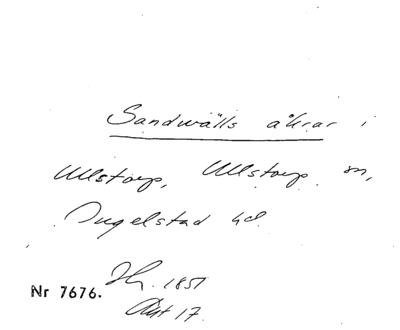 Sandwalls åkrar i
Ullstorp, Ullstorp sn,
Ingelstad hd.
Nr 7676.
Hy. 1851
Akt 17.